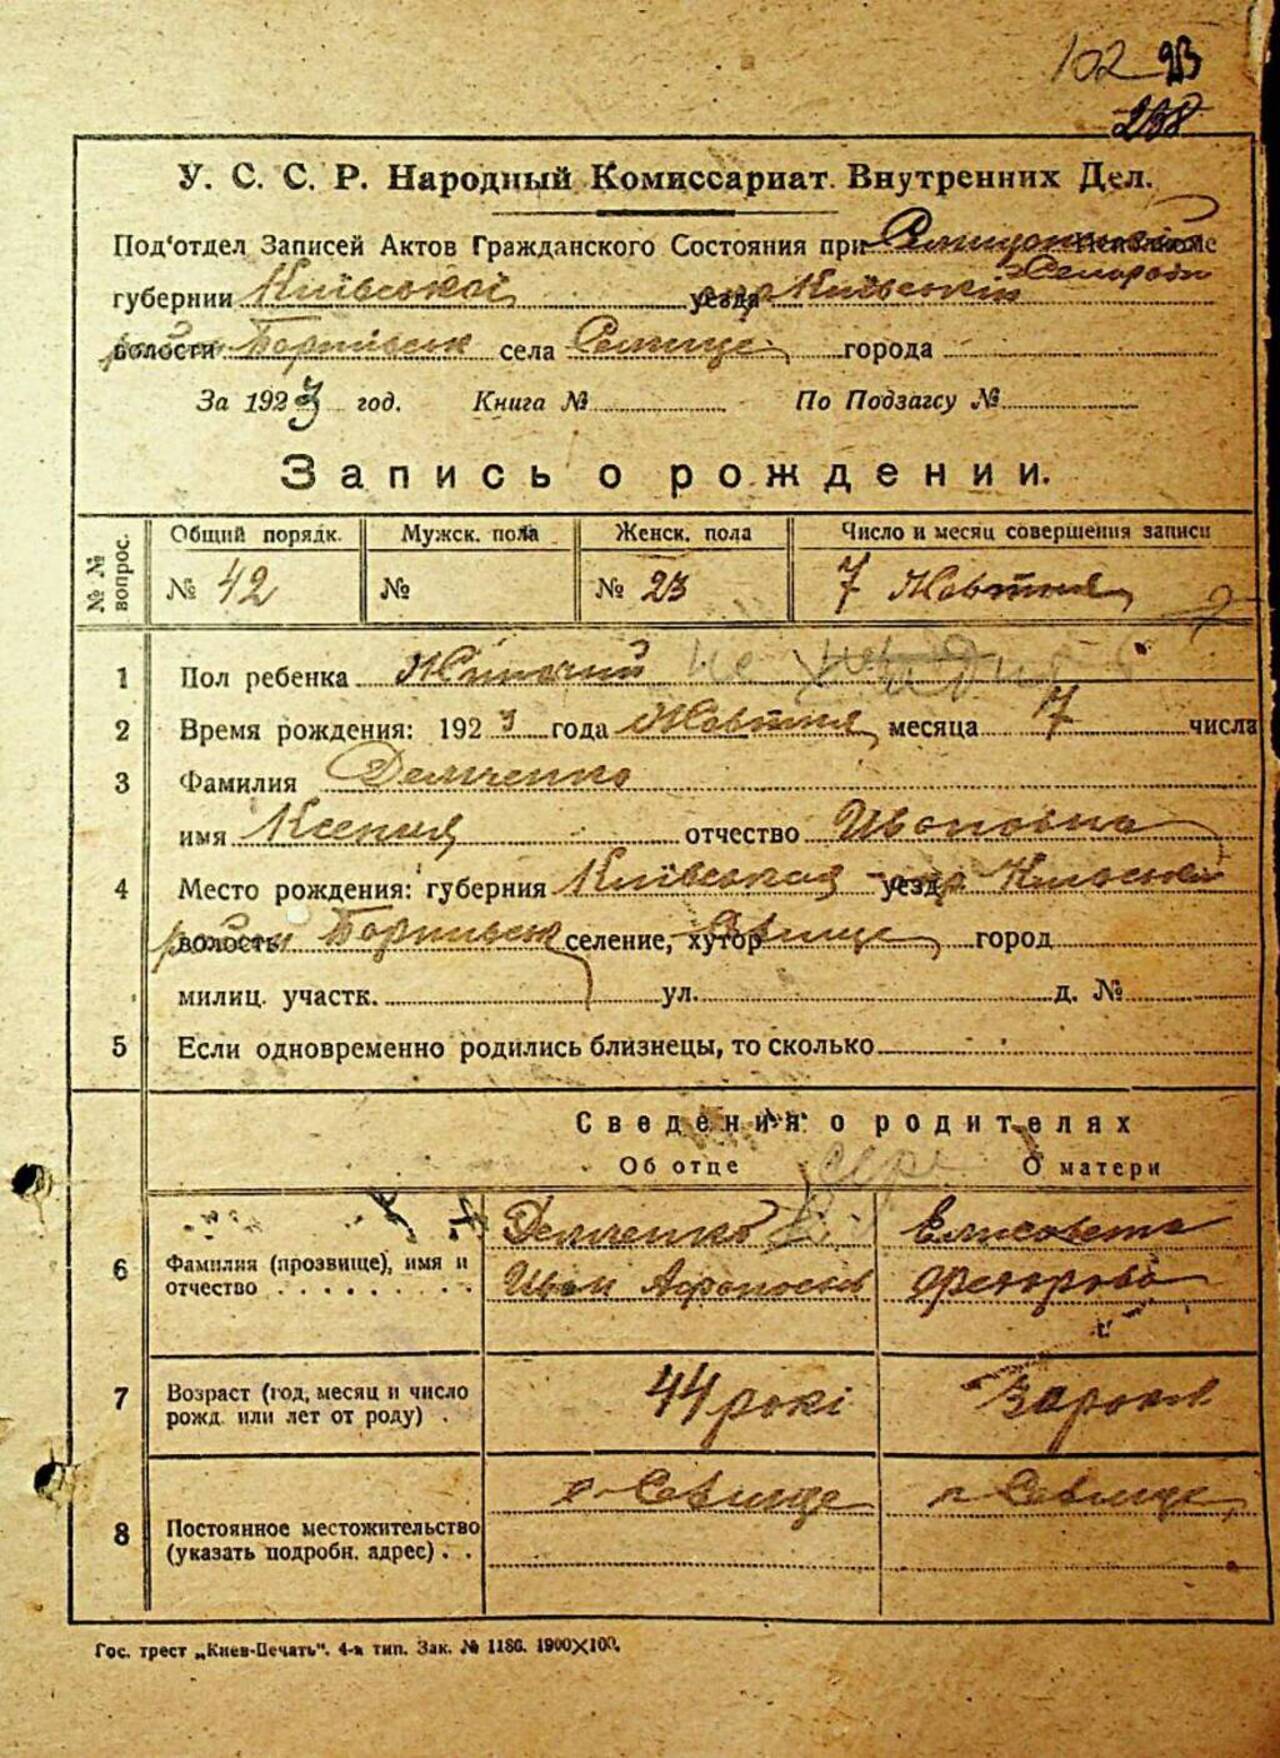 102 23
238
У. С. С. Р. Народный Комиссариат Внутренних Дел.
Под'отдел Записей Актов Гражданского Состояния при
губернии Київської уезда окр Київській
волости район Борпільск села города
За 1923 год. Книга № По Подзагсу №
Запись о рождении.
№ № вопрос. Общий порядк. Мужск. пола Женск. пола Число и месяц совершения записи
№ 42 № № 23 7 Жовтня
1 Пол ребенка Жіночий не
2 Время рождения: 1923 года Жовтня месяца 7 числа
3 Фамилия Демченко
имя Ксения отчество Ивановна
4 Место рождения: губерния Київская уезд окр Київськ
волость район селение, хутор город
милиц. участк. ул. д. №
5 Если одновременно родились близнецы, то сколько
Сведения о родителях
Об отце О матери
6 Фамилия (прозвище), имя и отчество Демченко Иван Афанасьев Елисовета Федорова
7 Возраст (год, месяц и число рожд. или лет от роду) 44 рокі
8 Постоянное местожительство (указать подробн. адрес)
Гос. трест „Киев-Печать". 4-я тип. Зак. № 1186. 1900×100.